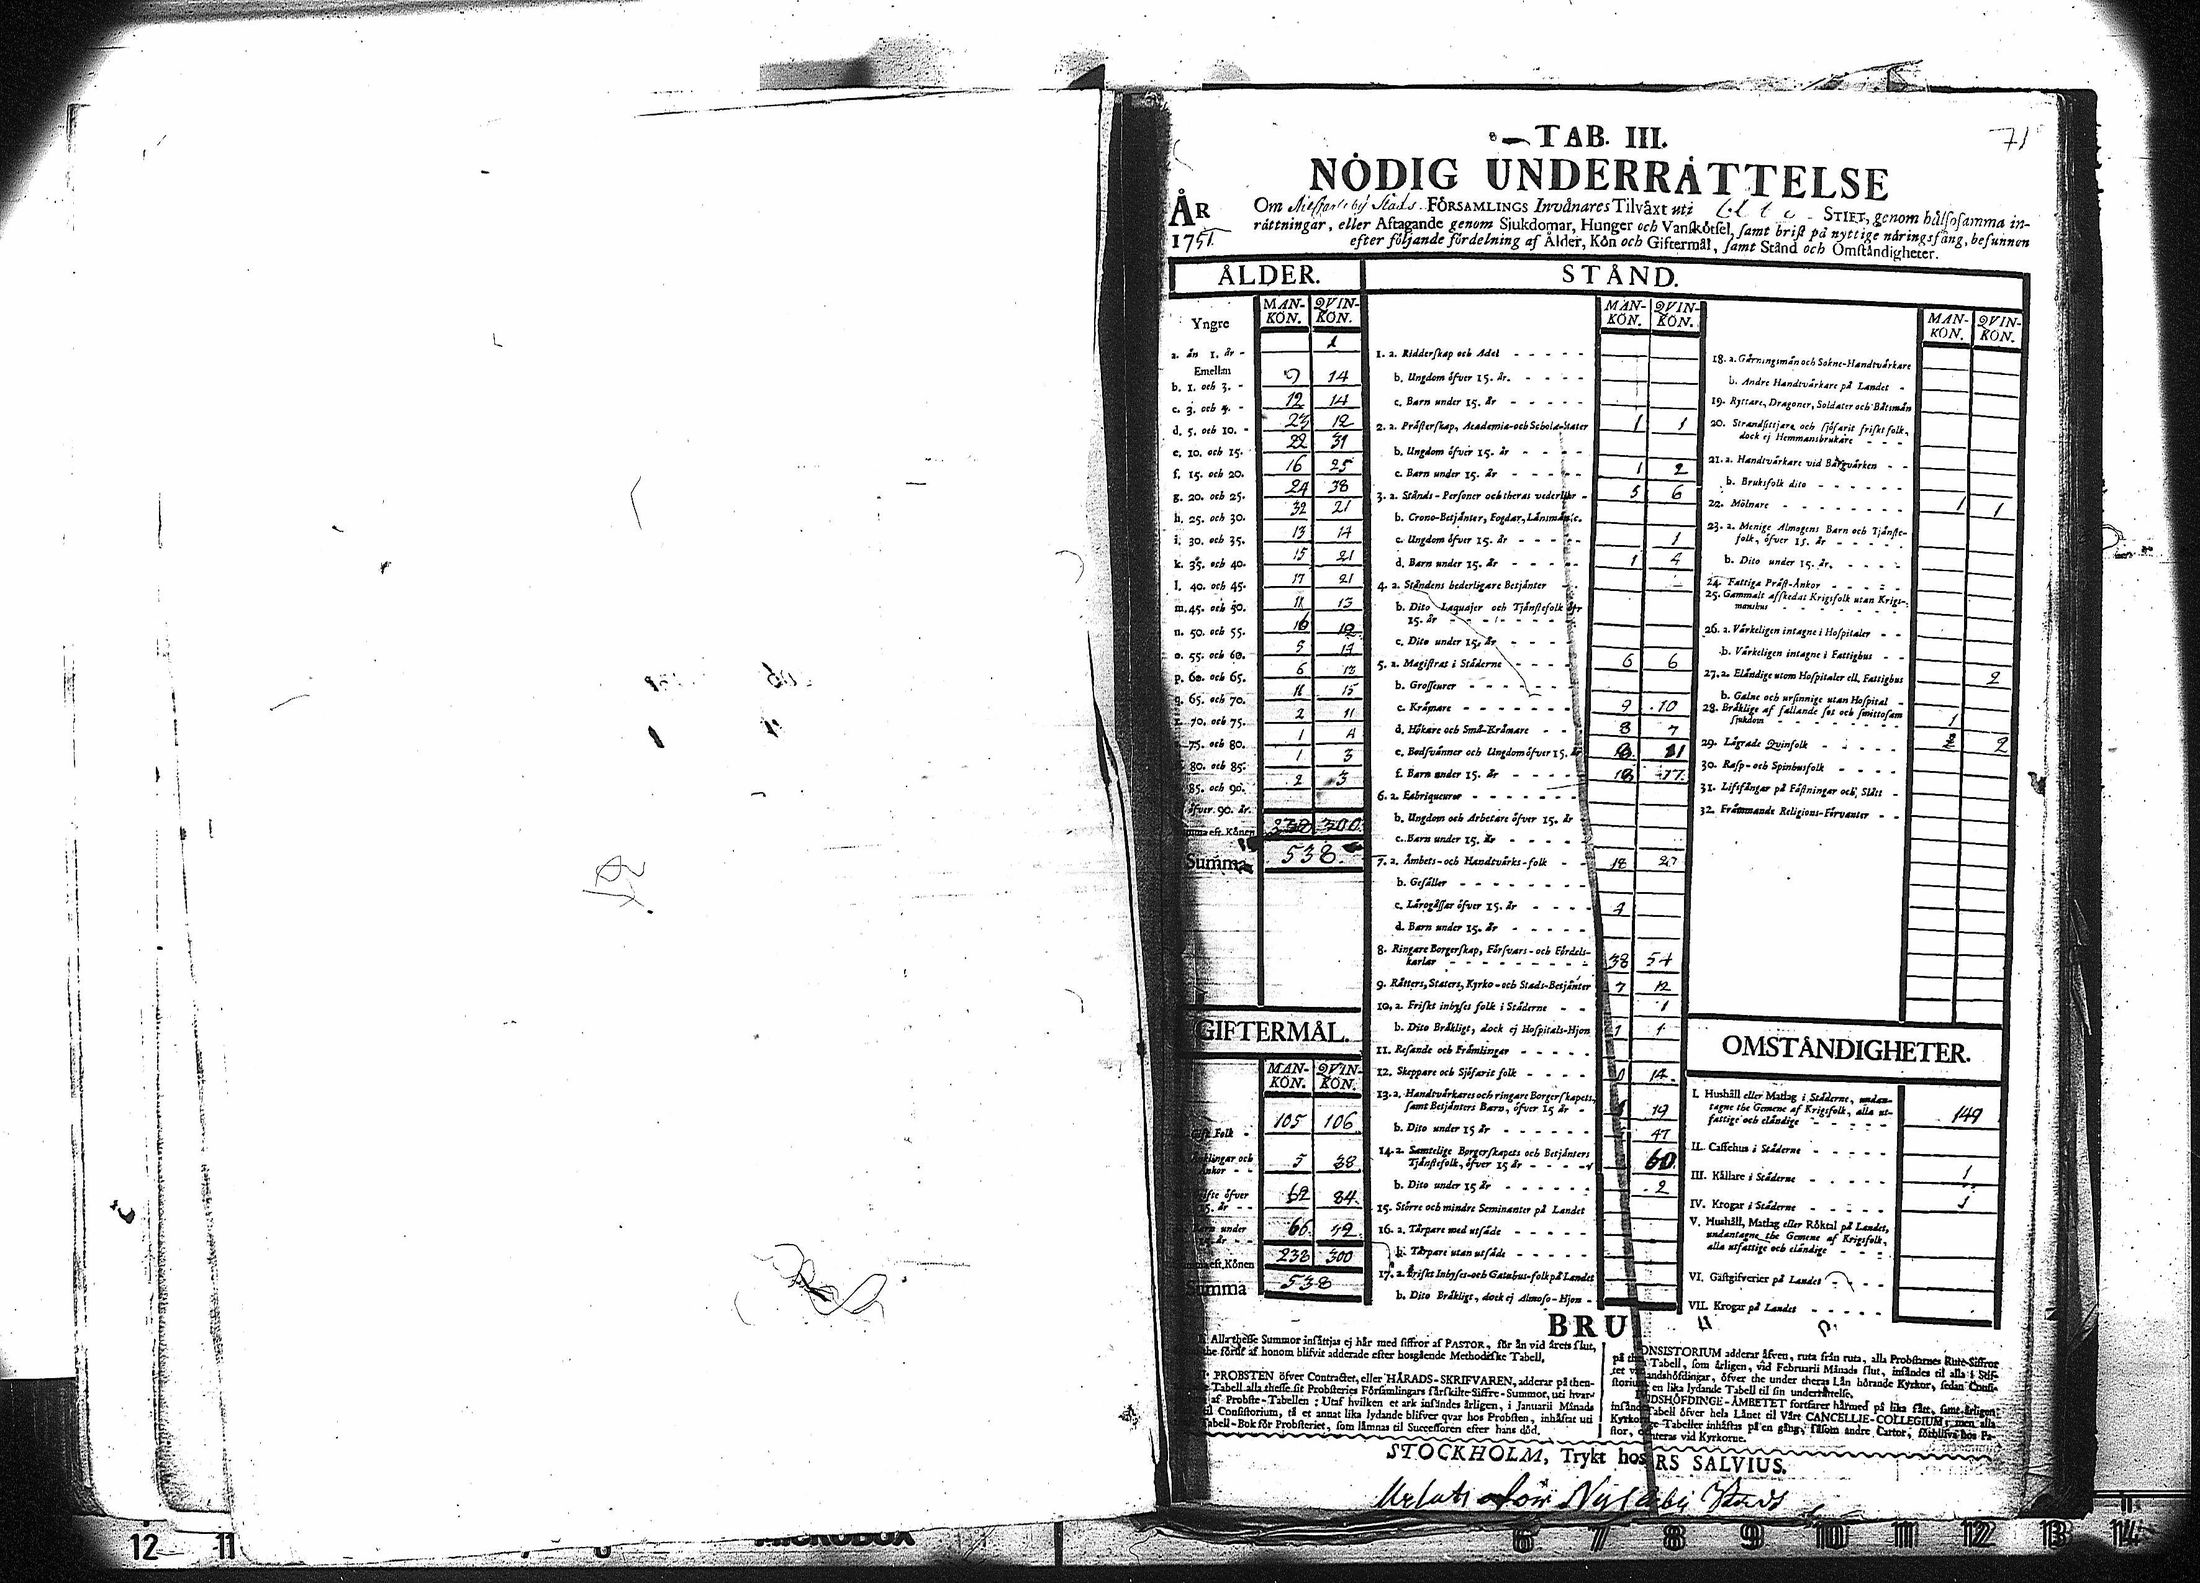 TAB. III.
71
NÖDIG UNDERRÅTTELSE
ÅR
1751.
Om Stads FÖRSAMLINGS Invånares Tilvåxt uti STIFT, genom hålsosamma in-
råttningar, eller Aftagande genom Sjukdomar, Hunger och Vanskötsel, samt brist på nyttige näringsfång, befunnen
efter följande fördelning af Ålder, Kön och Giftermål, samt Stånd och Omståndigheter.
ÅLDER.
MAN-KÖN. QVIN-KÖN.
Yngre
a. ån 1. år - 1
Emellan
b. 1. och 3. - 9 14
c. 3. och 5. - 12 14
d. 5. och 10. - 23 12
e. 10. och 15. 22 31
f. 15. och 20. 16 25
g. 20. och 25. 24 38
h. 25. och 30. 32 21
i. 30. och 35. 13 14
k. 35. och 40. 15 21
l. 40. och 45. 17 21
m. 45. och 50. 11 13
n. 50. och 55.
o. 55. och 60. 5
p. 60. och 65. 6
q. 65. och 70. 15
r. 70. och 75. 2 11
75. och 80. 1 4
80. och 85. 1 3
85. och 90. 2 3
öfver 90. år.
eft. Könen 238 300
Summa 538
GIFTERMÅL.
MAN-KÖN. QVIN-KÖN.
Gift Folk - 105 106
Enklingar och
Ånkor - - 5 38
Ogifte öfver
15. år - - 62 84
Barn under
15. år - - 66 72
eft. Könen 238 300
Summa 538
STÅND.
MAN-KÖN. QVIN-KÖN.
1. a. Ridderskap och Adel
b. Ungdom öfver 15. år.
c. Barn under 15. år
2. a. Pråsterskap, Academiæ- och Scholæ-Stater 1 1
b. Ungdom öfver 15. år
c. Barn under 15. år 1 2
3. a. Stånds-Personer och theras vederlikar 5 6
b. Crono-Betjånter, Fogdar, Lånsmån &c.
c. Ungdom öfver 15. år 1
d. Barn under 15. år 1 4
4. a. Ståndens hederligare Betjånter
b. Dito Laquajer och Tjånstefolk öfver
15. år
c. Dito under 15. år
5. a. Magistras i Ståderne 6 6
b. Grosseurer
c. Kråmare 9 10
d. Hökare och Små-Kråmare 8 7
e. Bodsvånner och Ungdom öfver 15. år
f. Barn under 15. år 18 17
6. a. Fabriqueurer
b. Ungdom och Arbetare öfver 15. år
c. Barn under 15. år
7. a. Åmbets- och Handtvårks-folk 18
b. Gesåller
c. Lårogåssar öfver 15. år 4
d. Barn under 15. år
8. Ringare Borgerskap, Försvars- och Fördels-
karlar 38 54
9. Råtters, Staters, Kyrko- och Stads-Betjånter 7 12
10. a. Friskt inhyses folk i Ståderne 1
b. Dito Bråkligt, dock ej Hospitals-Hjon 1 1
11. Resande och Fråmlingar
12. Skeppare och Sjöfarit folk 14
13. a. Handtvårkares och ringare Borgerskapets,
samt Betjånters Barn, öfver 15 år 19
b. Dito under 15 år 47
14. a. Samtelige Borgerskapets och Betjånters
Tjånstefolk, öfver 15 år 60
b. Dito under 15 år 2
15. Större och mindre Seminanter på Landet
16. a. Torpare med utsåde
b. Torpare utan utsåde
17. a. Friskt Inhyses- och Gatuhus-folk på Landet
b. Dito Bråkligt, dock ej Almoso-Hjon
MAN-KÖN. QVIN-KÖN.
18. a. Gårningsmån och Sokne-Handtvårkare
b. Andre Handtvårkare på Landet
19. Ryttare, Dragoner, Soldater och Båtsmån
20. Strandsittjare och sjöfarit friskt folk,
dock ej Hemmansbrukare
21. a. Handtvårkare vid Bårgvårken
b. Bruksfolk dito
22. Mölnare 1 1
23. a. Menige Almogens Barn och Tjånste-
folk, öfver 15. år
b. Dito under 15. år.
24. Fattiga Pråst-Ånkor
25. Gammalt afskedat Krigsfolk utan Krigs-
manshus
26. a. Vårkeligen intagne i Hospitaler
b. Vårkeligen intagne i Fattighus
27. a. Elåndige utom Hospitaler ell. Fattighus 2
b. Galne och ursinnige utan Hospital
28. Bråklige af fallande sot och smittosam
sjukdom 1
29. Lågrade Qvinfolk 2
30. Rasp- och Spinhusfolk
31. Lifsfångar på Fåstningar och Slått
32. Fråmmande Religions-Förvanter
OMSTÅNDIGHETER.
I. Hushåll eller Matlag i Ståderne, undan-
tagne the Gemene af Krigsfolk, alla ut-
fattige och elåndige 149
II. Caffehus i Ståderne
III. Kållare i Ståderne 1
IV. Krogar i Ståderne 1
V. Hushåll, Matlag eller Röktal på Landet,
undantagne the Gemene af Krigsfolk,
alla utfattige och elåndige
VI. Gåstgifverier på Landet
VII. Krogar på Landet
BRU
Alla thesse Summor insåttjas ej hår med siffror af PASTOR, för ån vid årets slut,
the förut af honom blifvit adderade efter hosgående Methodiske Tabell.
PROBSTEN öfver Contractet, eller HÅRADS-SKRIFVAREN, adderar på then-
Tabell alla thesse sit Probsteries Församlingars sårskilte Siffre-Summor, uti hvar-
af Probste-Tabellen; Utaf hvilken et ark insåndes årligen, i Januarii Månads
til Consistorium, få et annat lika lydande blifver qvar hos Probsten, inhåftat uti
Tabell-Bok för Probsteriet, som låmnas til Successoren efter hans död.
ONSISTORIUM adderar åfven, ruta från ruta, alla Probstarnes Rute-Siffror
på Tabell, som årligen, vid Februarii Månads slut, insåndes til alla i Stif-
tet andshöfdingar, öfver the under theras Lån hörande Kyrkor, sedan Consi-
storium en lika lydande Tabell til sin underråttelse.
NDSHÖFDINGE-ÅMBETET fortfarer hårmed på lika sått, samt årligen
insånd Tabell öfver hela Lånet til Vårt CANCELLIE-COLLEGIUM; men alla
Kyrko Tabeller inhåftas på en gång, såsom andre Cartor, förblifva hos Pa-
stor, vid Kyrkorne.
STOCKHOLM, Trykt hos RS SALVIUS.
Stads
MICROBOX
12 11 6 7 8 9 10 11 12 13 14